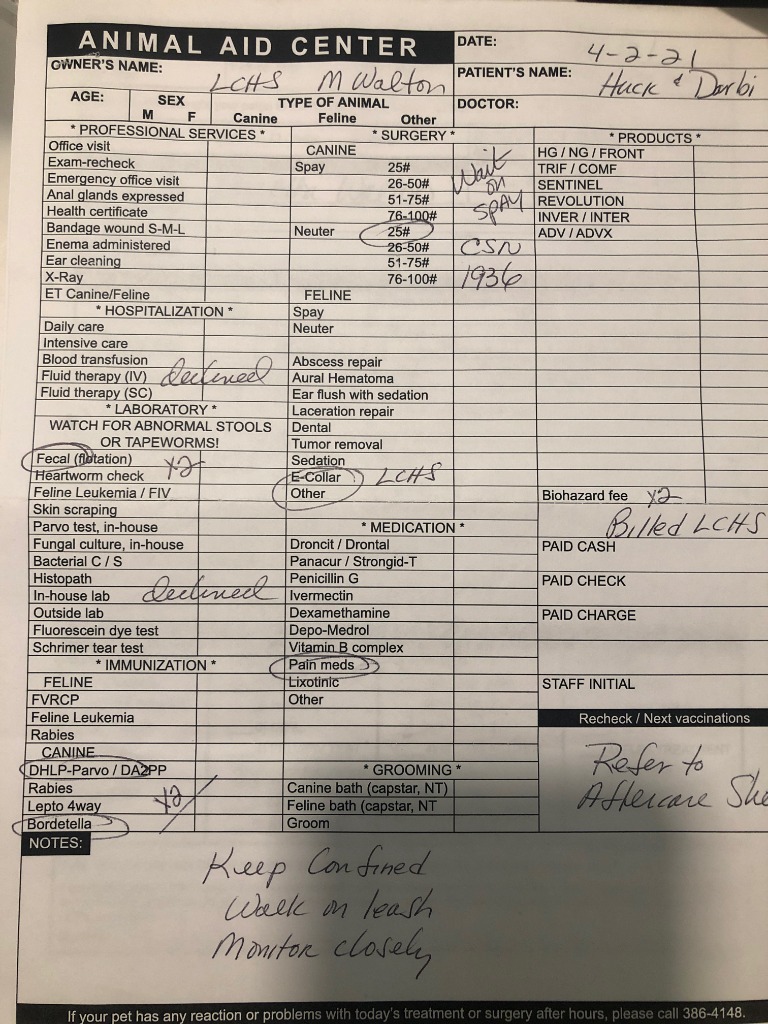 ANIMAL AID CENTER
DATE: 4-2-21
OWNER'S NAME: LCHS M Walton
PATIENT'S NAME: Huck & Darbi
AGE:
SEX
M F
TYPE OF ANIMAL
Canine Feline Other
DOCTOR:
* PROFESSIONAL SERVICES *
Office visit
Exam-recheck
Emergency office visit
Anal glands expressed
Health certificate
Bandage wound S-M-L
Enema administered
Ear cleaning
X-Ray
ET Canine/Feline
* HOSPITALIZATION *
Daily care
Intensive care
Blood transfusion
Fluid therapy (IV) declined
Fluid therapy (SC)
* LABORATORY *
WATCH FOR ABNORMAL STOOLS
OR TAPEWORMS!
Fecal (flotation) X2
Heartworm check
Feline Leukemia / FIV
Skin scraping
Parvo test, in-house
Fungal culture, in-house
Bacterial C / S
Histopath
In-house lab declined
Outside lab
Fluorescein dye test
Schrimer tear test
* IMMUNIZATION *
FELINE
FVRCP
Feline Leukemia
Rabies
CANINE
DHLP-Parvo / DA2PP
Rabies
Lepto 4way X2
Bordetella
* SURGERY *
CANINE
Spay 25#
26-50#
51-75#
76-100#
Wait
on
SPAY
Neuter 25#
26-50#
51-75#
76-100#
CSN
1936
FELINE
Spay
Neuter
Abscess repair
Aural Hematoma
Ear flush with sedation
Laceration repair
Dental
Tumor removal
Sedation
E-Collar LCHS
Other
* MEDICATION *
Droncit / Drontal
Panacur / Strongid-T
Penicillin G
Ivermectin
Dexamethamine
Depo-Medrol
Vitamin B complex
Pain meds
Lixotinic
Other
* GROOMING *
Canine bath (capstar, NT)
Feline bath (capstar, NT
Groom
* PRODUCTS *
HG / NG / FRONT
TRIF / COMF
SENTINEL
REVOLUTION
INVER / INTER
ADV / ADVX
Biohazard fee X2
Billed LCHS
PAID CASH
PAID CHECK
PAID CHARGE
STAFF INITIAL
Recheck / Next vaccinations
Refer to
Aftercare She
NOTES:
Keep Confined
Walk on leash
Monitor closely
If your pet has any reaction or problems with today's treatment or surgery after hours, please call 386-4148.